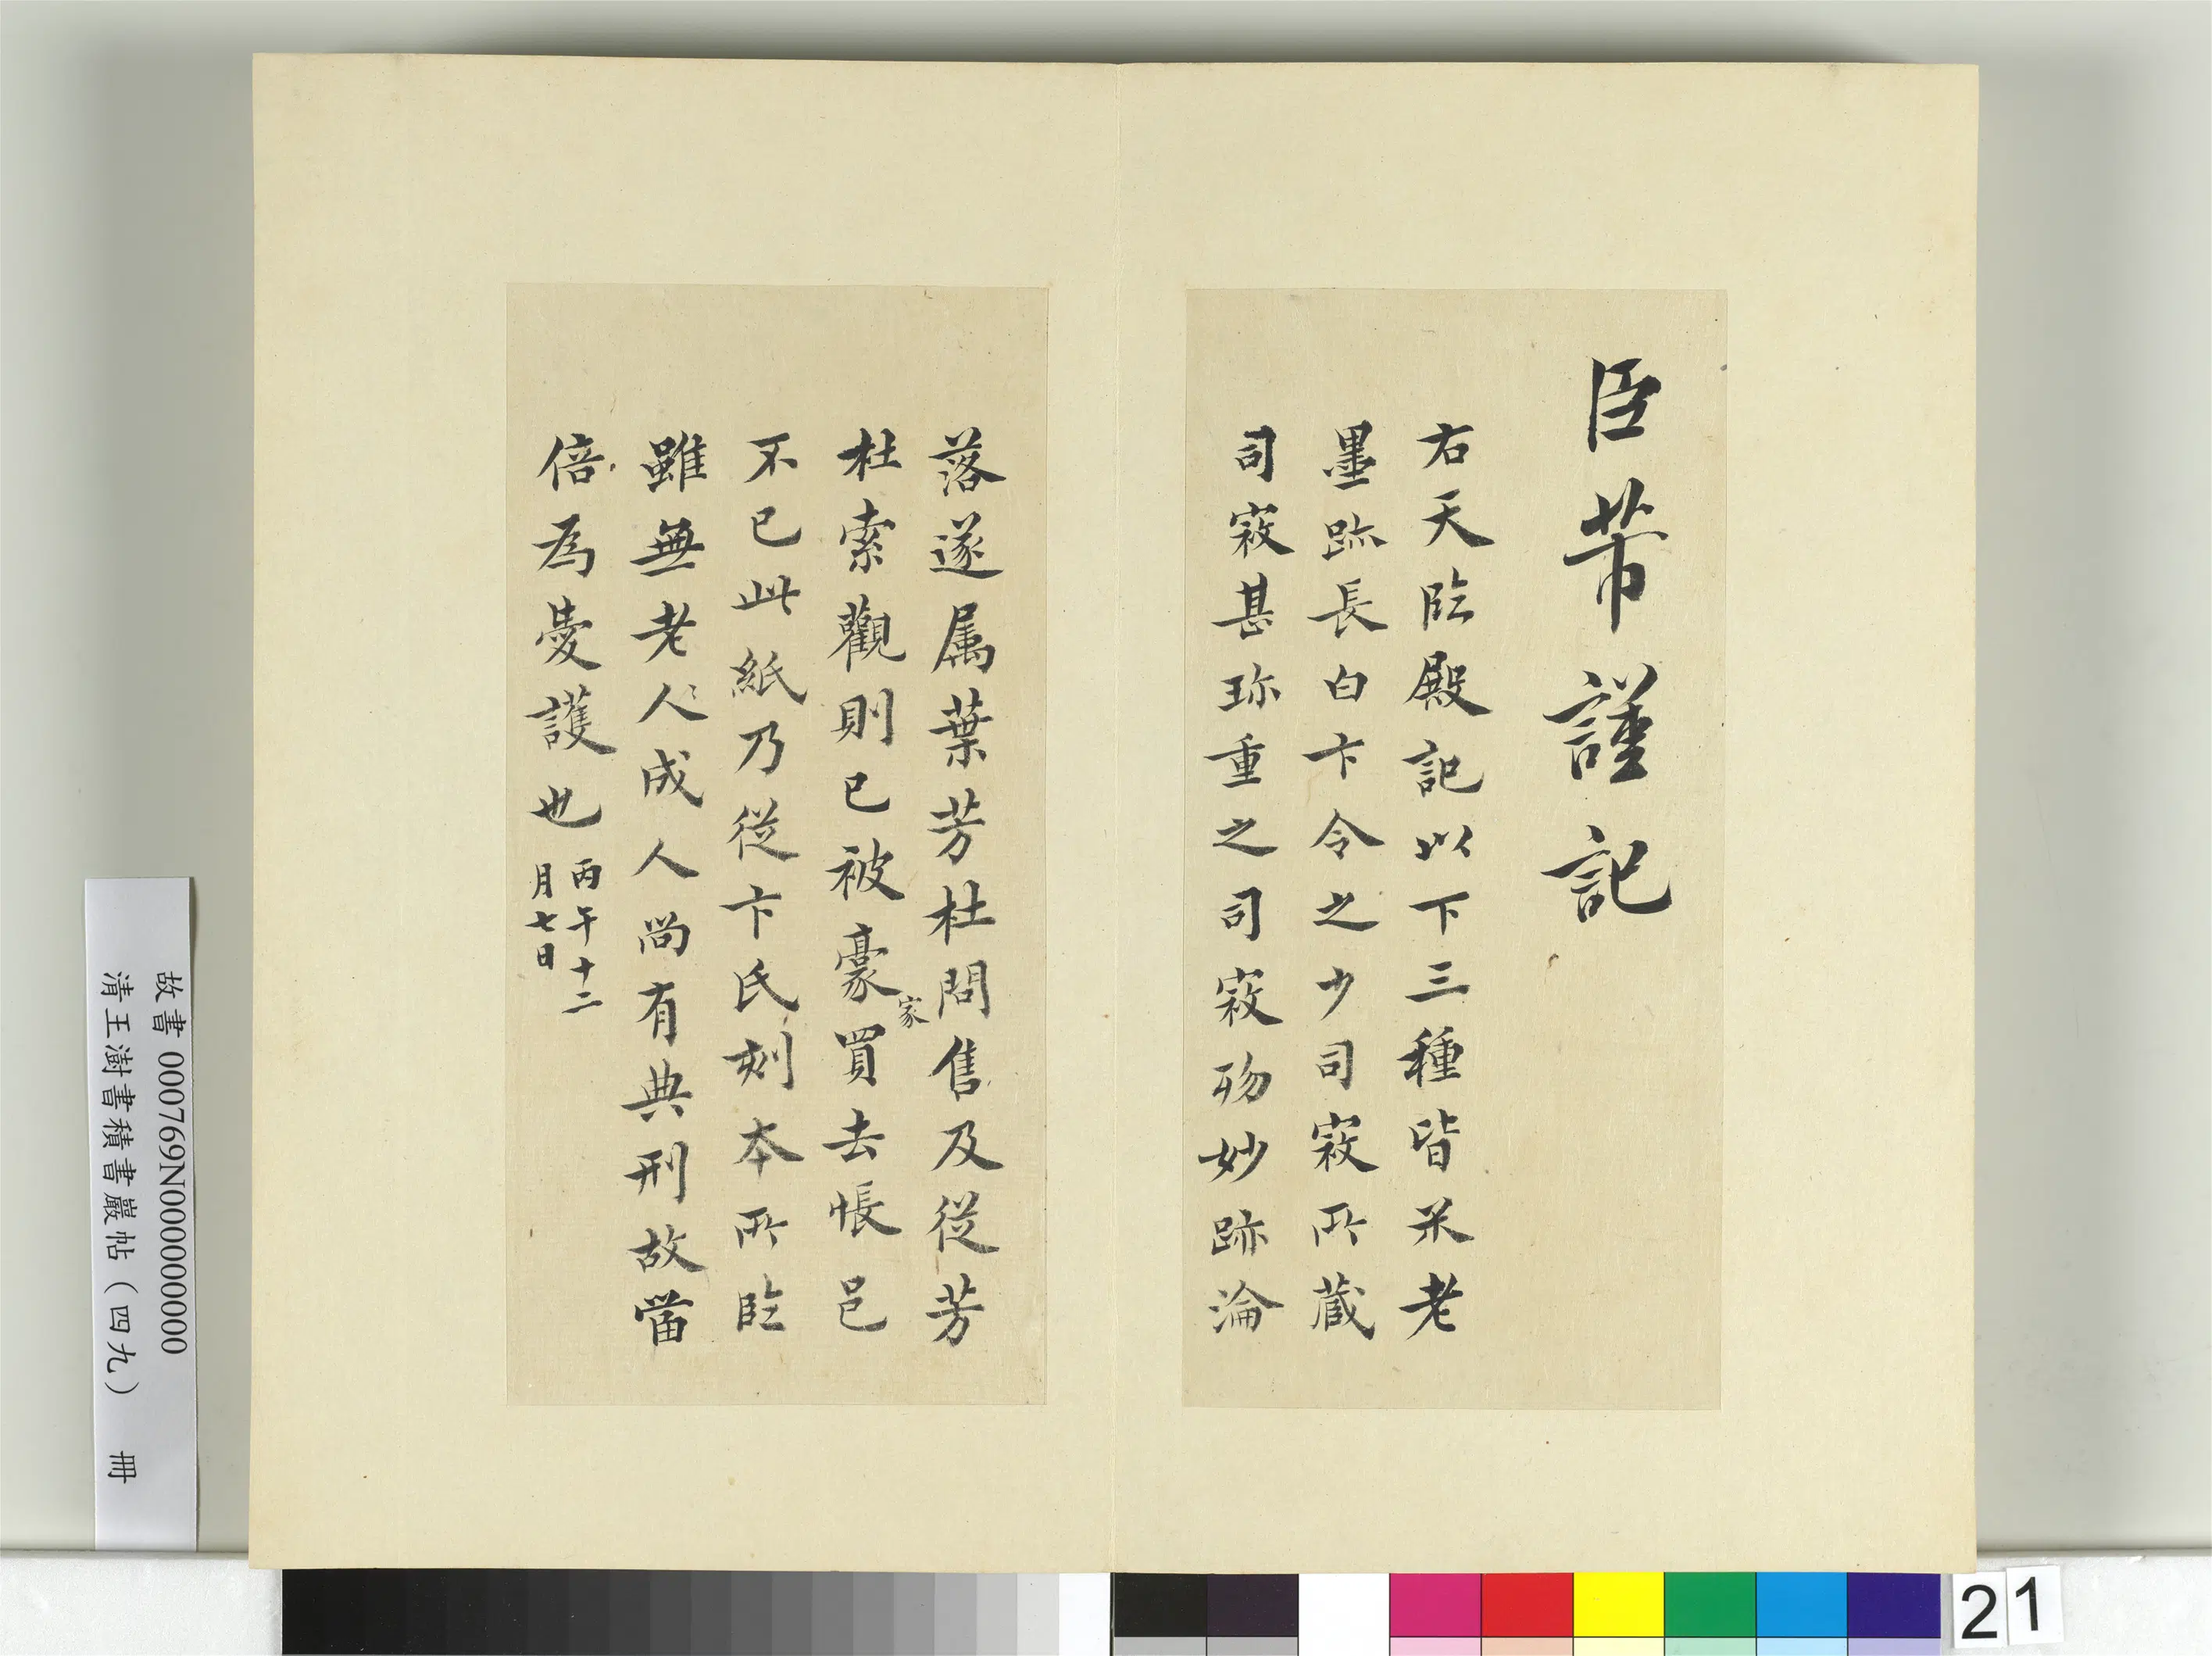 臣芾謹記
右天臨殿記以下三種皆米老
墨跡長白卞令之少司寇所藏
司寇甚珎重之司寇歾妙跡淪
落遂属葉芳杜問售及從芳
杜索觀則已被豪家買去悵邑
不已此紙乃從卞氏刻本所臨
雖無老人〻成人尚有典刑故當
倍為愛護也 丙午十二
月七日
故書 000769N000000000
清王澍書積書巖帖（四九） 冊
21